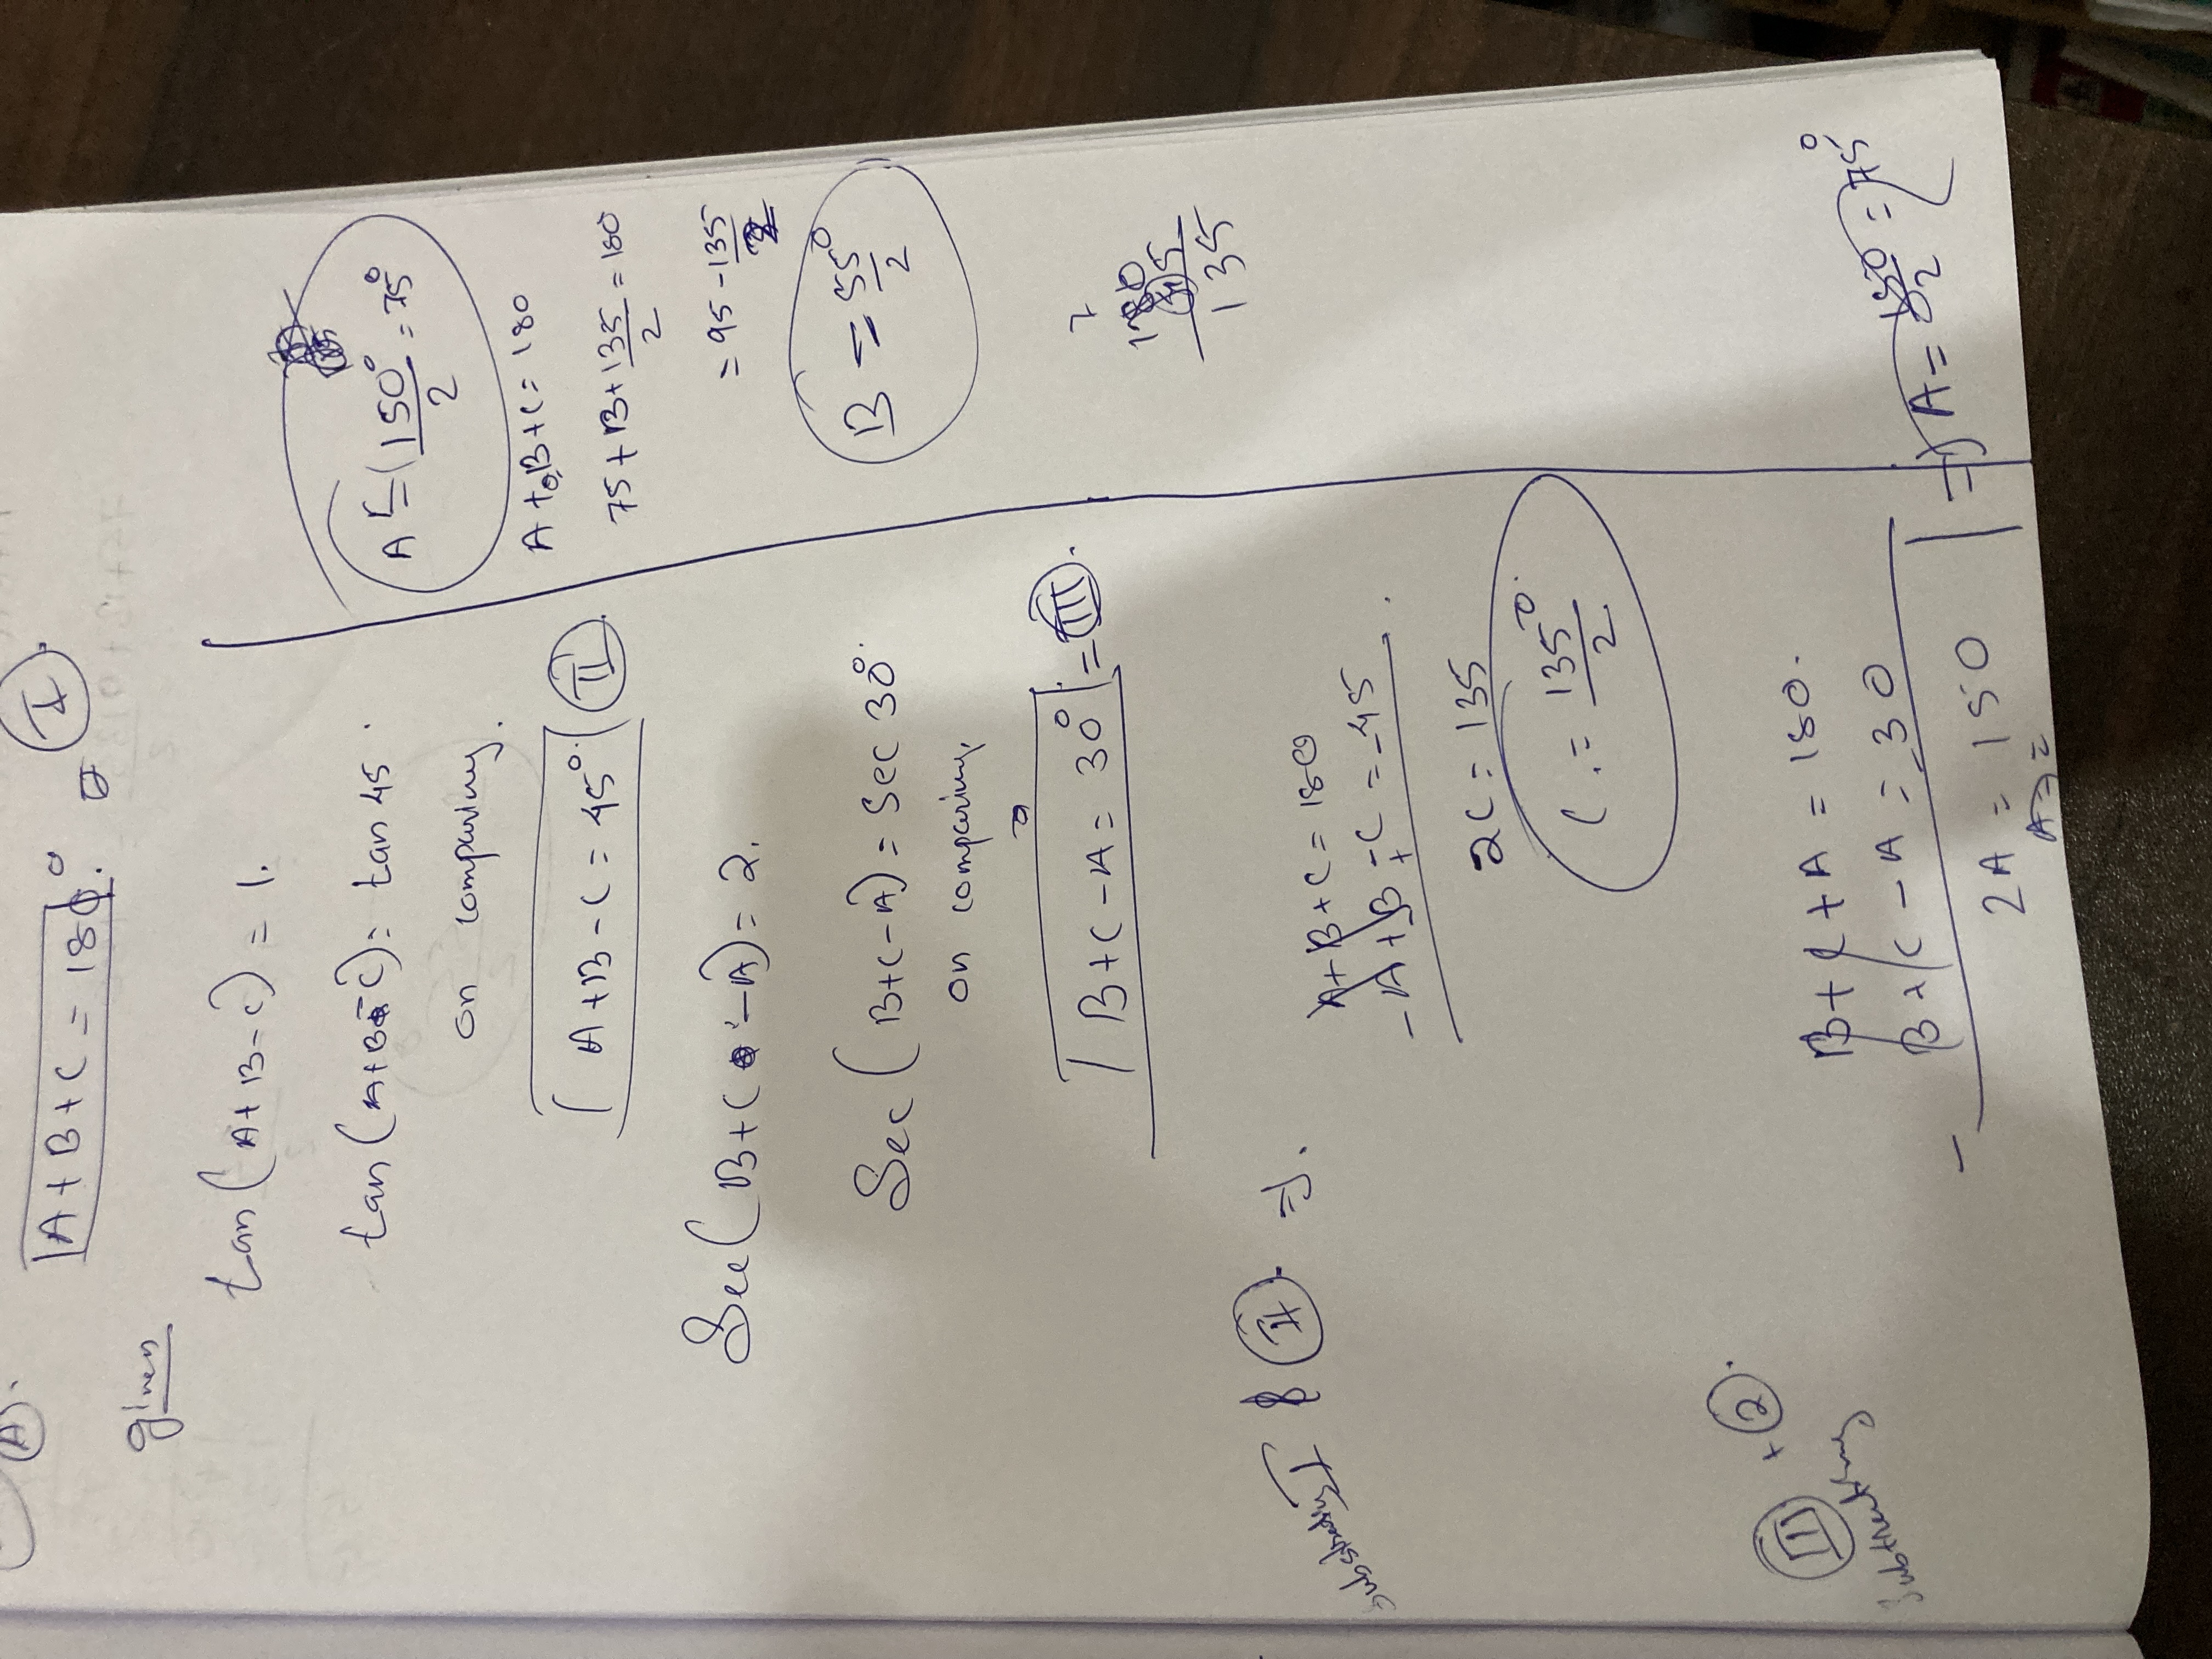 (A).
A + B + C = 180°. (I).
given
tan (A + B - C) = 1.
tan (A+B-C) = tan 45.
on comparing.
A + B - C = 45°. (II)
Sec (B + C - A) = 2.
Sec (B+C-A) = Sec 30°.
on comparing,
B + C - A = 30° = (III).
Substracting I & (II). =).
A+B+C = 180
-A+B-C = -45.
+
2C = 135
C = 135°/2.
(III) + (2).
B + C + A = 180.
B + C - A = 30
2A = 150 | => A = 150/2 = 75°
A =
A = (150°/2 = 75°
A + B + C = 180
75 + B + 135/2 = 180
= 95 - 135/2
B = 55°/2
180
45
135